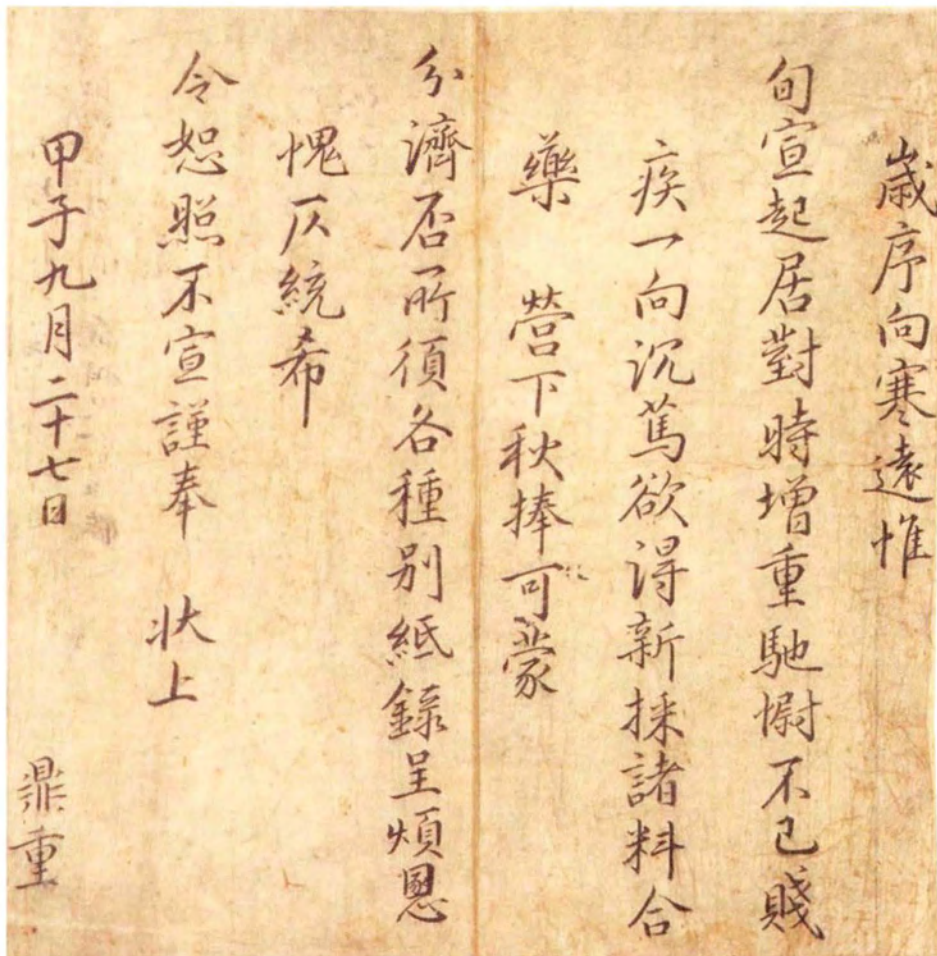 歲序向寒遠惟
旬宣起居對時增重馳慰不已賤
疾一向沉篤欲得新採諸料合
藥 營下秋捧可蒙
分濟否所須各種別紙錄呈煩恩
愧仄統希
令恕照不宣謹奉 狀上
甲子九月二十七日 鼎重